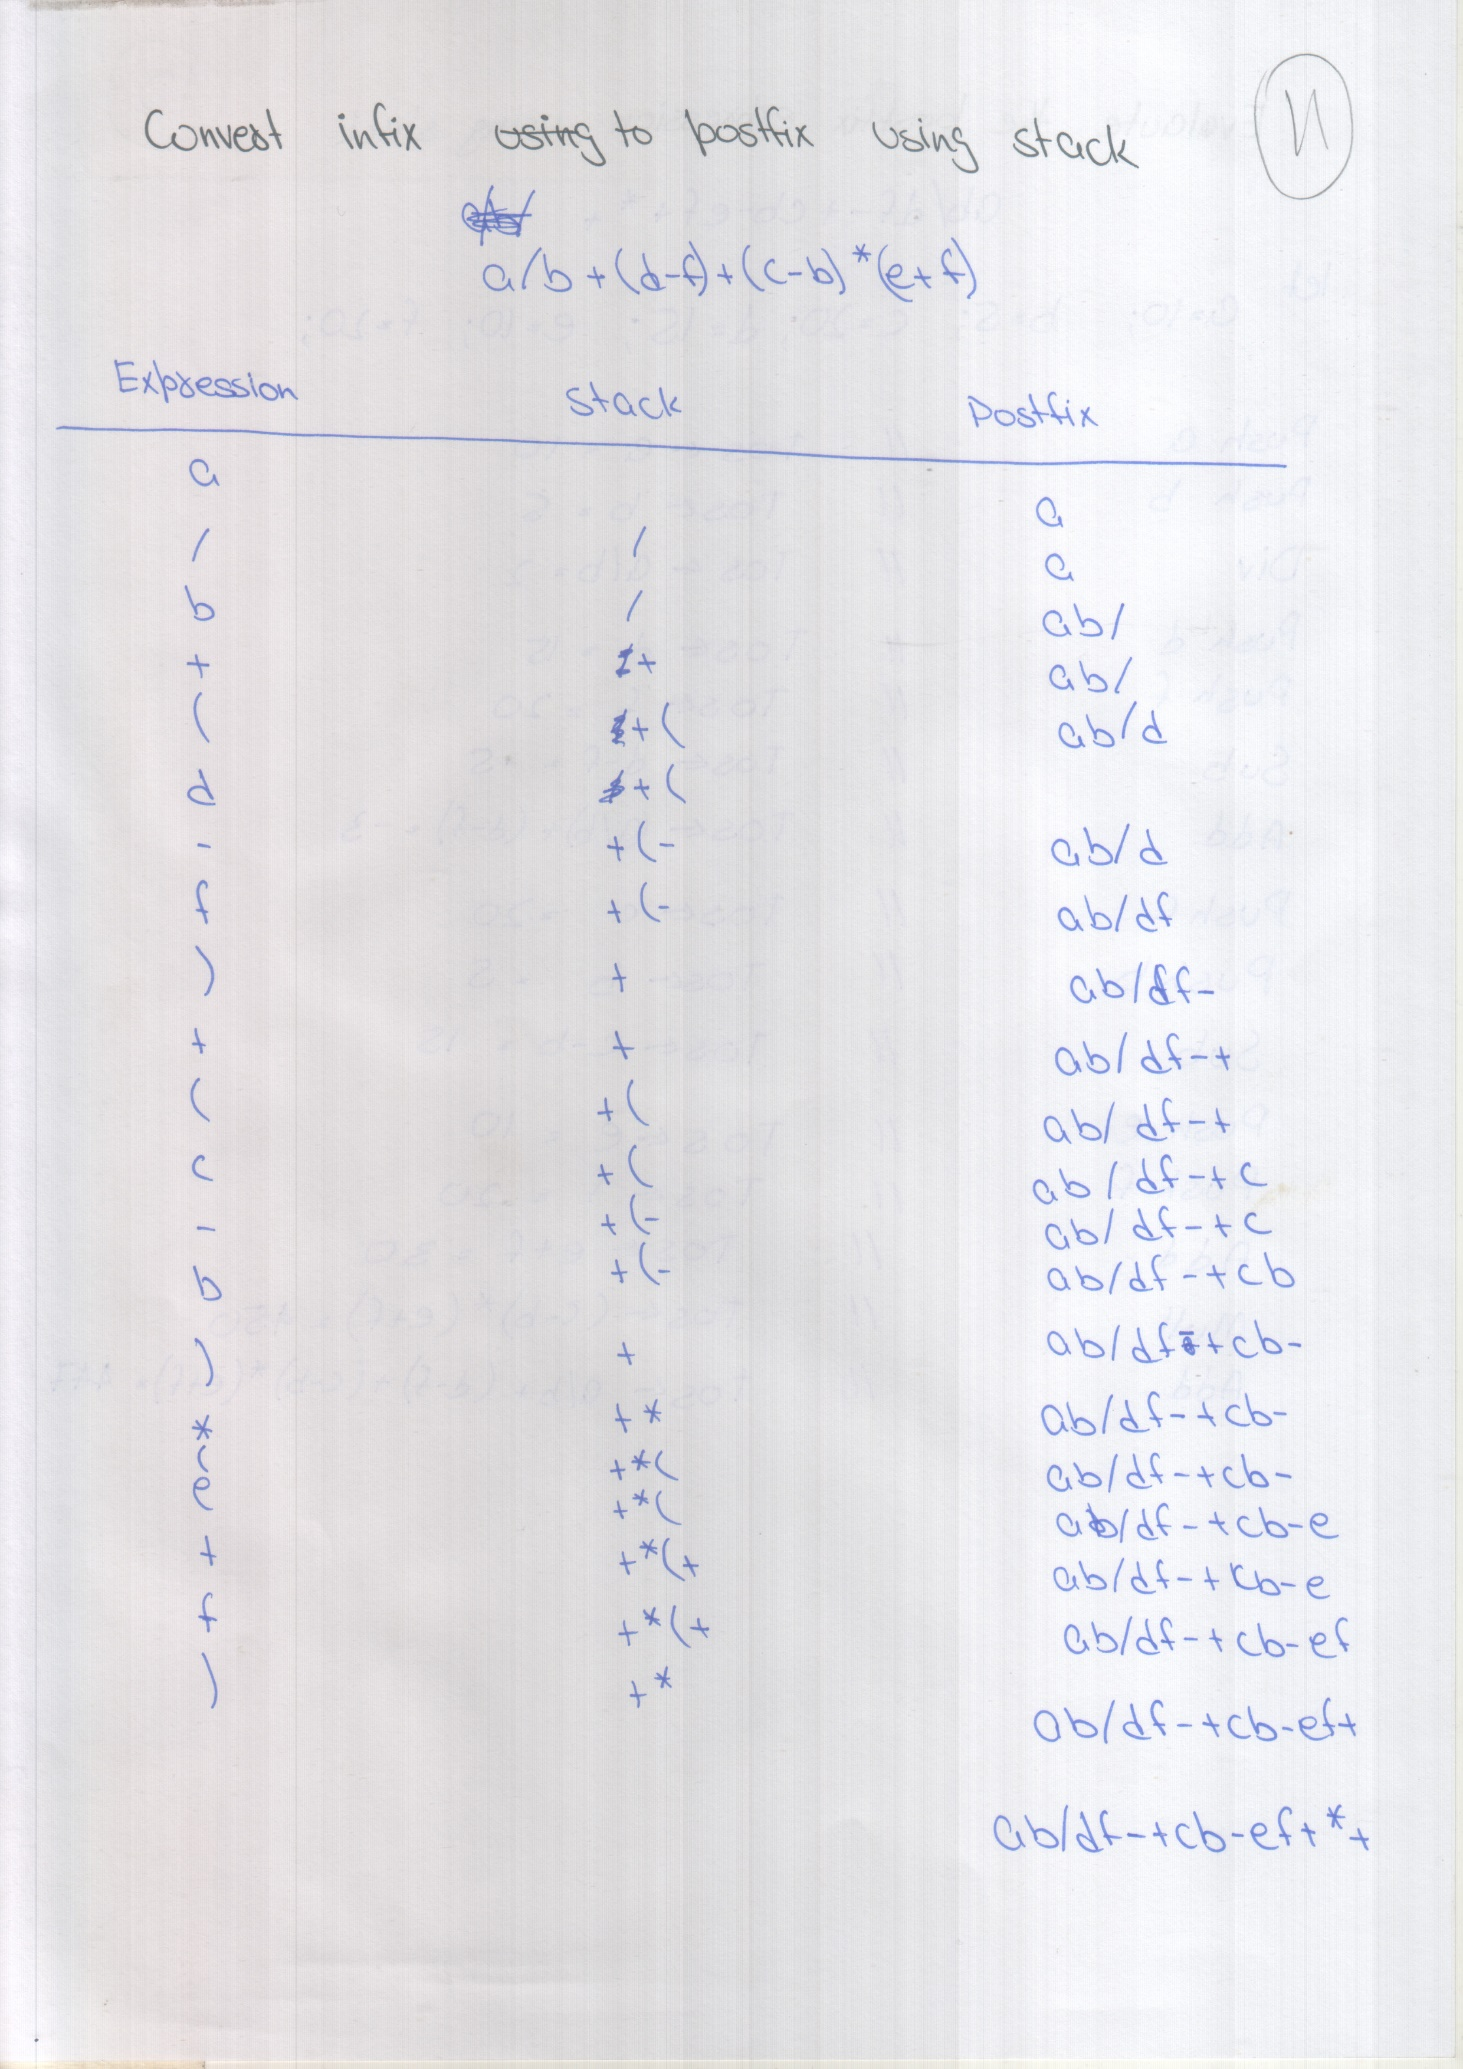 Convert infix using to postfix using stack
11
a/b + (d-f) + (c-b) * (e+f)
Expression stack Postfix
a a
/ / a
b / ab/
+ + ab/
( +( ab/d
d +(
- +(- ab/d
f +(- ab/df
) + ab/df-
+ + ab/df-+
( +( ab/df-+
c +( ab/df-+c
- +(- ab/df-+c
b +(- ab/df-+cb
) + ab/df-+cb-
* +* ab/df-+cb-
( +*( ab/df-+cb-
e +*( ab/df-+cb-e
+ +*(+ ab/df-+cb-e
f +*(+ ab/df-+cb-ef
) +* ab/df-+cb-ef+
ab/df-+cb-ef+*+